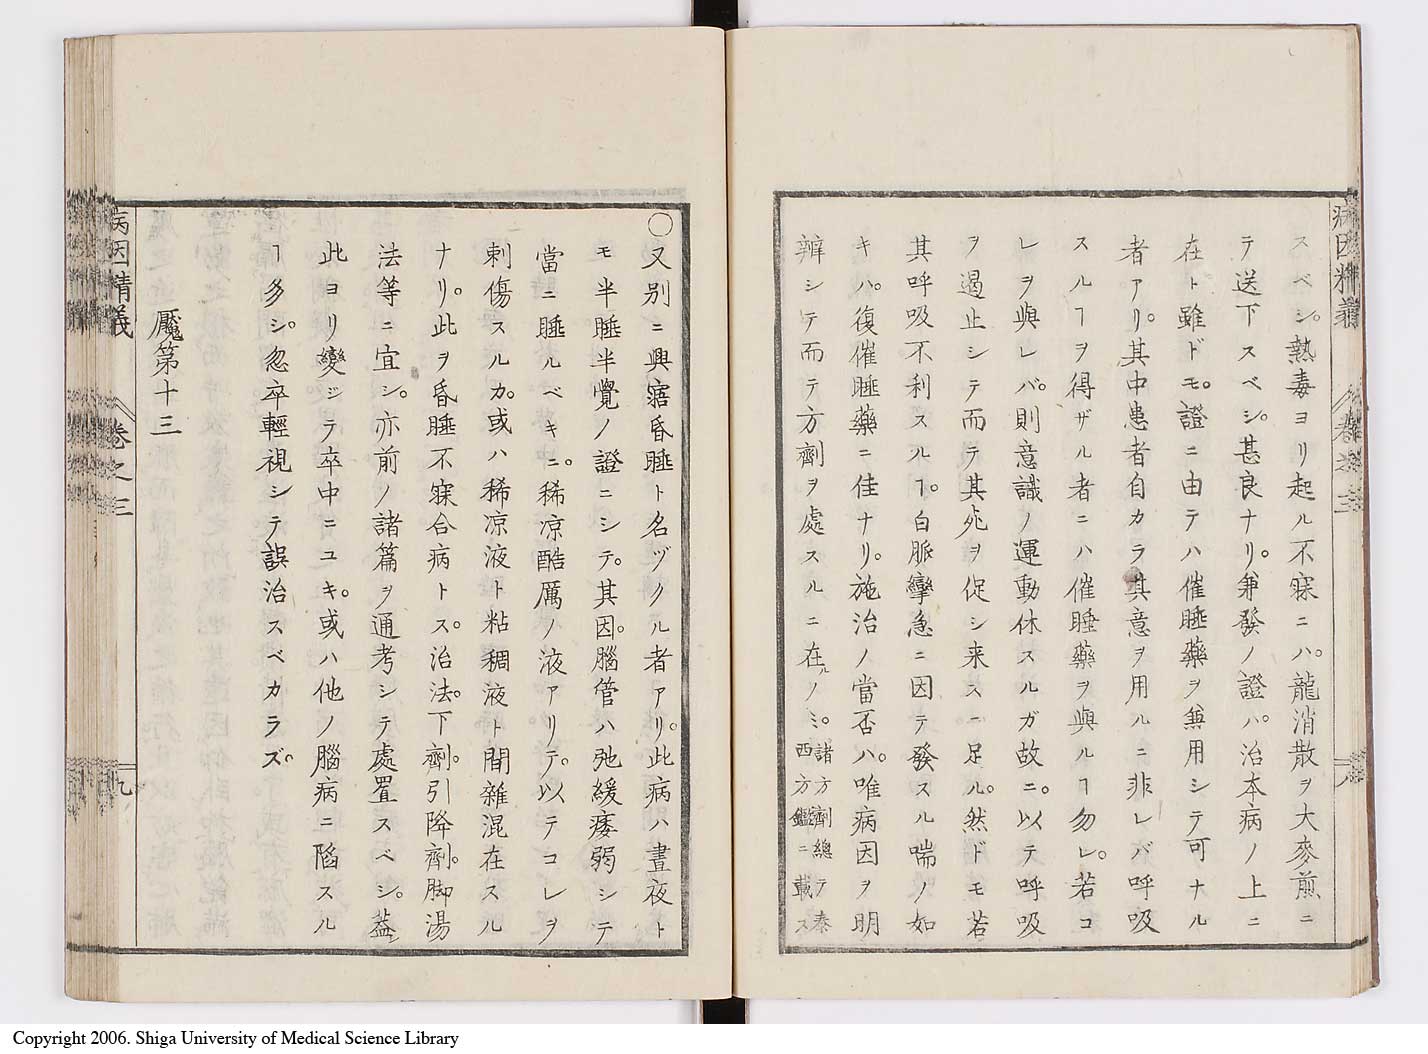 病因精義 卷之三 八
スベシ。熱毒ヨリ起ル不寐ニハ。龍消散ヲ大麥煎ニ
テ送下スベシ。甚良ナリ。兼發ノ證ハ。治本病ノ上ニ
在ト雖ドモ。證ニ由テハ催睡藥ヲ兼用シテ可ナル
者アリ。其中患者自カラ其意ヲ用ルニ非レバ呼吸
スルヿヲ得ザル者ニハ催睡藥ヲ與ルヿ勿レ。若コ
レヲ與レバ。則意識ノ運動休スルガ故ニ。以テ呼吸
ヲ遏止シテ而テ其死ヲ促シ来スニ足ル。然ドモ若
其呼吸不利スルヿ。白脈攣急ニ因テ發スル喘ノ如
キハ。復催睡藥ニ佳ナリ。施治ノ當否ハ。唯病因ヲ明
辨シテ而テ方劑ヲ處スルニ在ルノミ。諸方劑總テ泰
西方鑑ニ載ス
○又別ニ興寤昏睡ト名ヅクル者アリ。此病ハ晝夜ト
モ半睡半覺ノ證ニシテ。其因。腦管ハ弛緩痿弱シテ
當ニ睡ルベキニ。稀凉酷厲ノ液アリテ。以テコレヲ
刺傷スルカ。或ハ稀凉液ト粘稠液ト間雜混在スル
ナリ。此ヲ昏睡不寐合病トス。治法。下劑。引降劑。脚湯
法等ニ宜シ。亦前ノ諸篇ヲ通考シテ處置スベシ。蓋シ
此ヨリ變ジテ卒中ニユキ。或ハ他ノ腦病ニ陷スル
ヿ多シ。忽卒輕視シテ誤治スベカラズ。
魘第十三
病因精義 卷之三 九
Copyright 2006. Shiga University of Medical Science Library